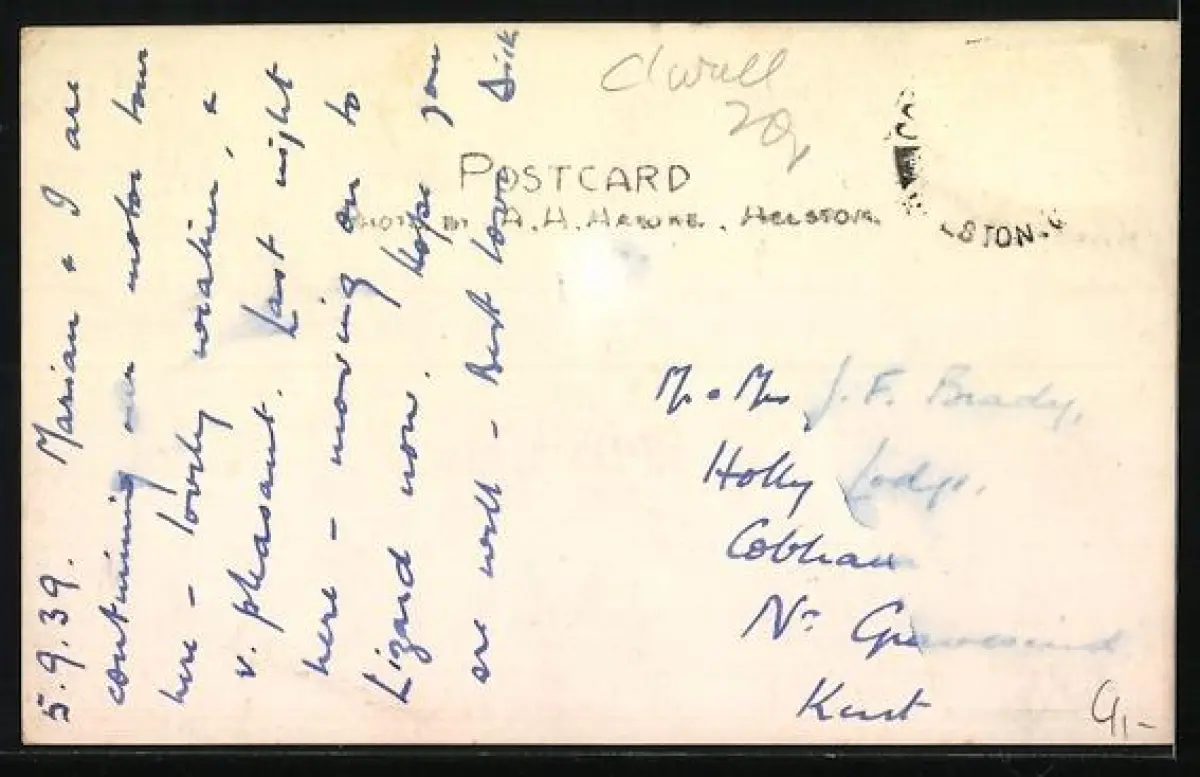 5.9.39. Marian & I are
continuing our motor tour
here - lovely weather, &
v. pleasant. Last night
here - moving on to
Lizard now. Hope you
are well - Best love Dick
POSTCARD
PHOTO BY A.H. HAWKE. HELSTON.
STON
Mr & Mrs J. F. Brady,
Holly Lodge,
Cobham
Nr Gravesend
Kent